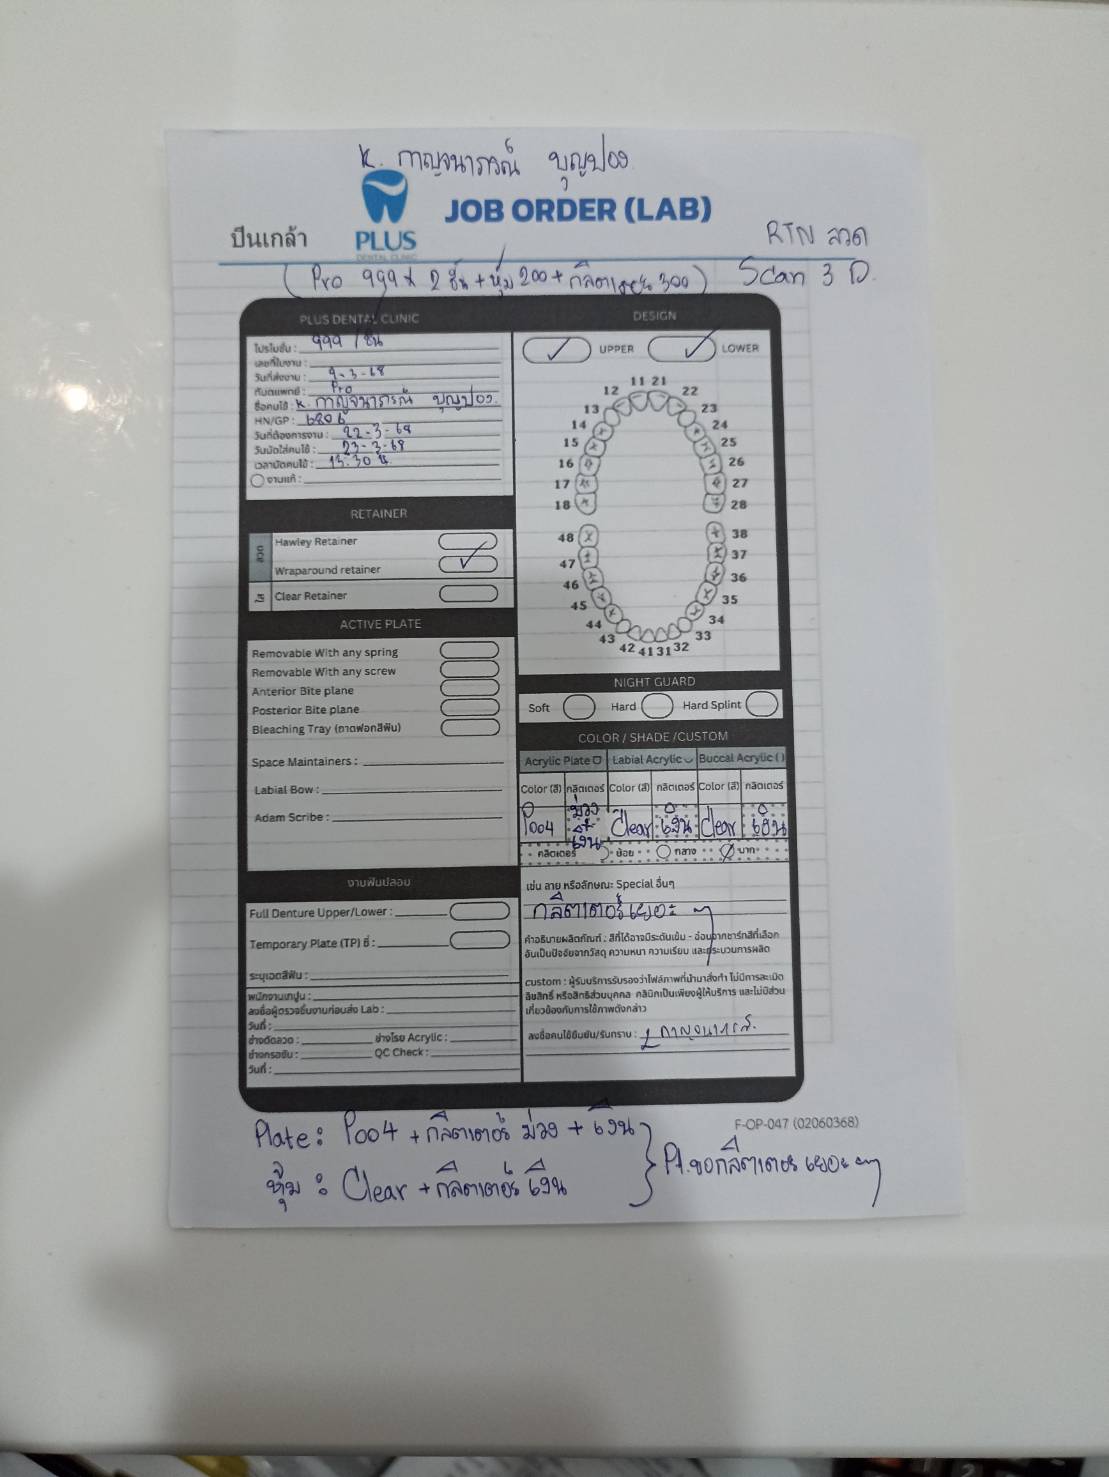 K. กาญจนาภรณ์ บุญปอง
PLUS
DENTAL CLINIC
JOB ORDER (LAB)
ปิ่นเกล้า
RTN ลวด
Scan 3 D.
(Pro 999 x 2 ชิ้น + หุ้ม 200 + กลิตเตอร์ 300)
PLUS DENTAL CLINIC
โปรโมชั่น : 999 / ชิ้น
เลขที่ใบงาน :
วันที่ส่งงาน : 9-3-68
ทันตแพทย์ : Pro
ชื่อคนไข้ : K. กาญจนาภรณ์ บุญปอง.
HN/GP : 6806
วันที่ต้องการงาน : 22-3-68
วันนัดใส่คนไข้ : 23-3-68
เวลานัดคนไข้ : 13.30 น.
งานแก้ :
RETAINER
ลวด
Hawley Retainer
Wraparound retainer
ใส
Clear Retainer
ACTIVE PLATE
Removable With any spring
Removable With any screw
Anterior Bite plane
Posterior Bite plane
Bleaching Tray (ถาดฟอกสีฟัน)
Space Maintainers :
Labial Bow :
Adam Scribe :
งานฟันปลอม
Full Denture Upper/Lower :
Temporary Plate (TP) ซี่ :
ระบุเฉดสีฟัน :
พนักงานเทปูน :
ลงชื่อผู้ตรวจชิ้นงานก่อนส่ง Lab :
วันที่ :
ช่างดัดลวด : ช่างโรย Acrylic :
ช่างกรอขัด : QC Check :
วันที่ :
DESIGN
UPPER LOWER
11 21
12 22
13 23
14 24
15 25
16 26
17 27
18 28
48 38
47 37
46 36
45 35
44 34
43 33
42 41 31 32
NIGHT GUARD
Soft Hard Hard Splint
COLOR / SHADE /CUSTOM
Acrylic Plate Labial Acrylic Buccal Acrylic ( )
Color (สี) กลิตเตอร์ Color (สี) กลิตเตอร์ Color (สี) กลิตเตอร์
P004 ม่วง + เงิน Clear เงิน Clear เงิน
กลิตเตอร์ น้อย กลาง มาก
เช่น ลาย หรือลักษณะ Special อื่นๆ
กลิตเตอร์เยอะ ๆ
คำอธิบายผลิตภัณฑ์ : สีที่ได้อาจมีระดับเข้ม - อ่อนจากชาร์ทสีที่เลือก
อันเป็นปัจจัยจากวัสดุ ความหนา ความเรียบ และกระบวนการผลิต
custom : ผู้รับบริการรับรองว่าไฟล์ภาพที่นำมาสั่งทำ ไม่มีการละเมิด
ลิขสิทธิ์ หรือสิทธิส่วนบุคคล คลินิกเป็นเพียงผู้ให้บริการ และไม่มีส่วน
เกี่ยวข้องกับการใช้ภาพดังกล่าว
ลงชื่อคนไข้ยืนยัน/รับทราบ :
F-OP-047 (02060368)
Plate : P004 + กลิตเตอร์ ม่วง + เงิน
หุ้ม : Clear + กลิตเตอร์ เงิน
Pt.ขอกลิตเตอร์ เยอะ ๆ